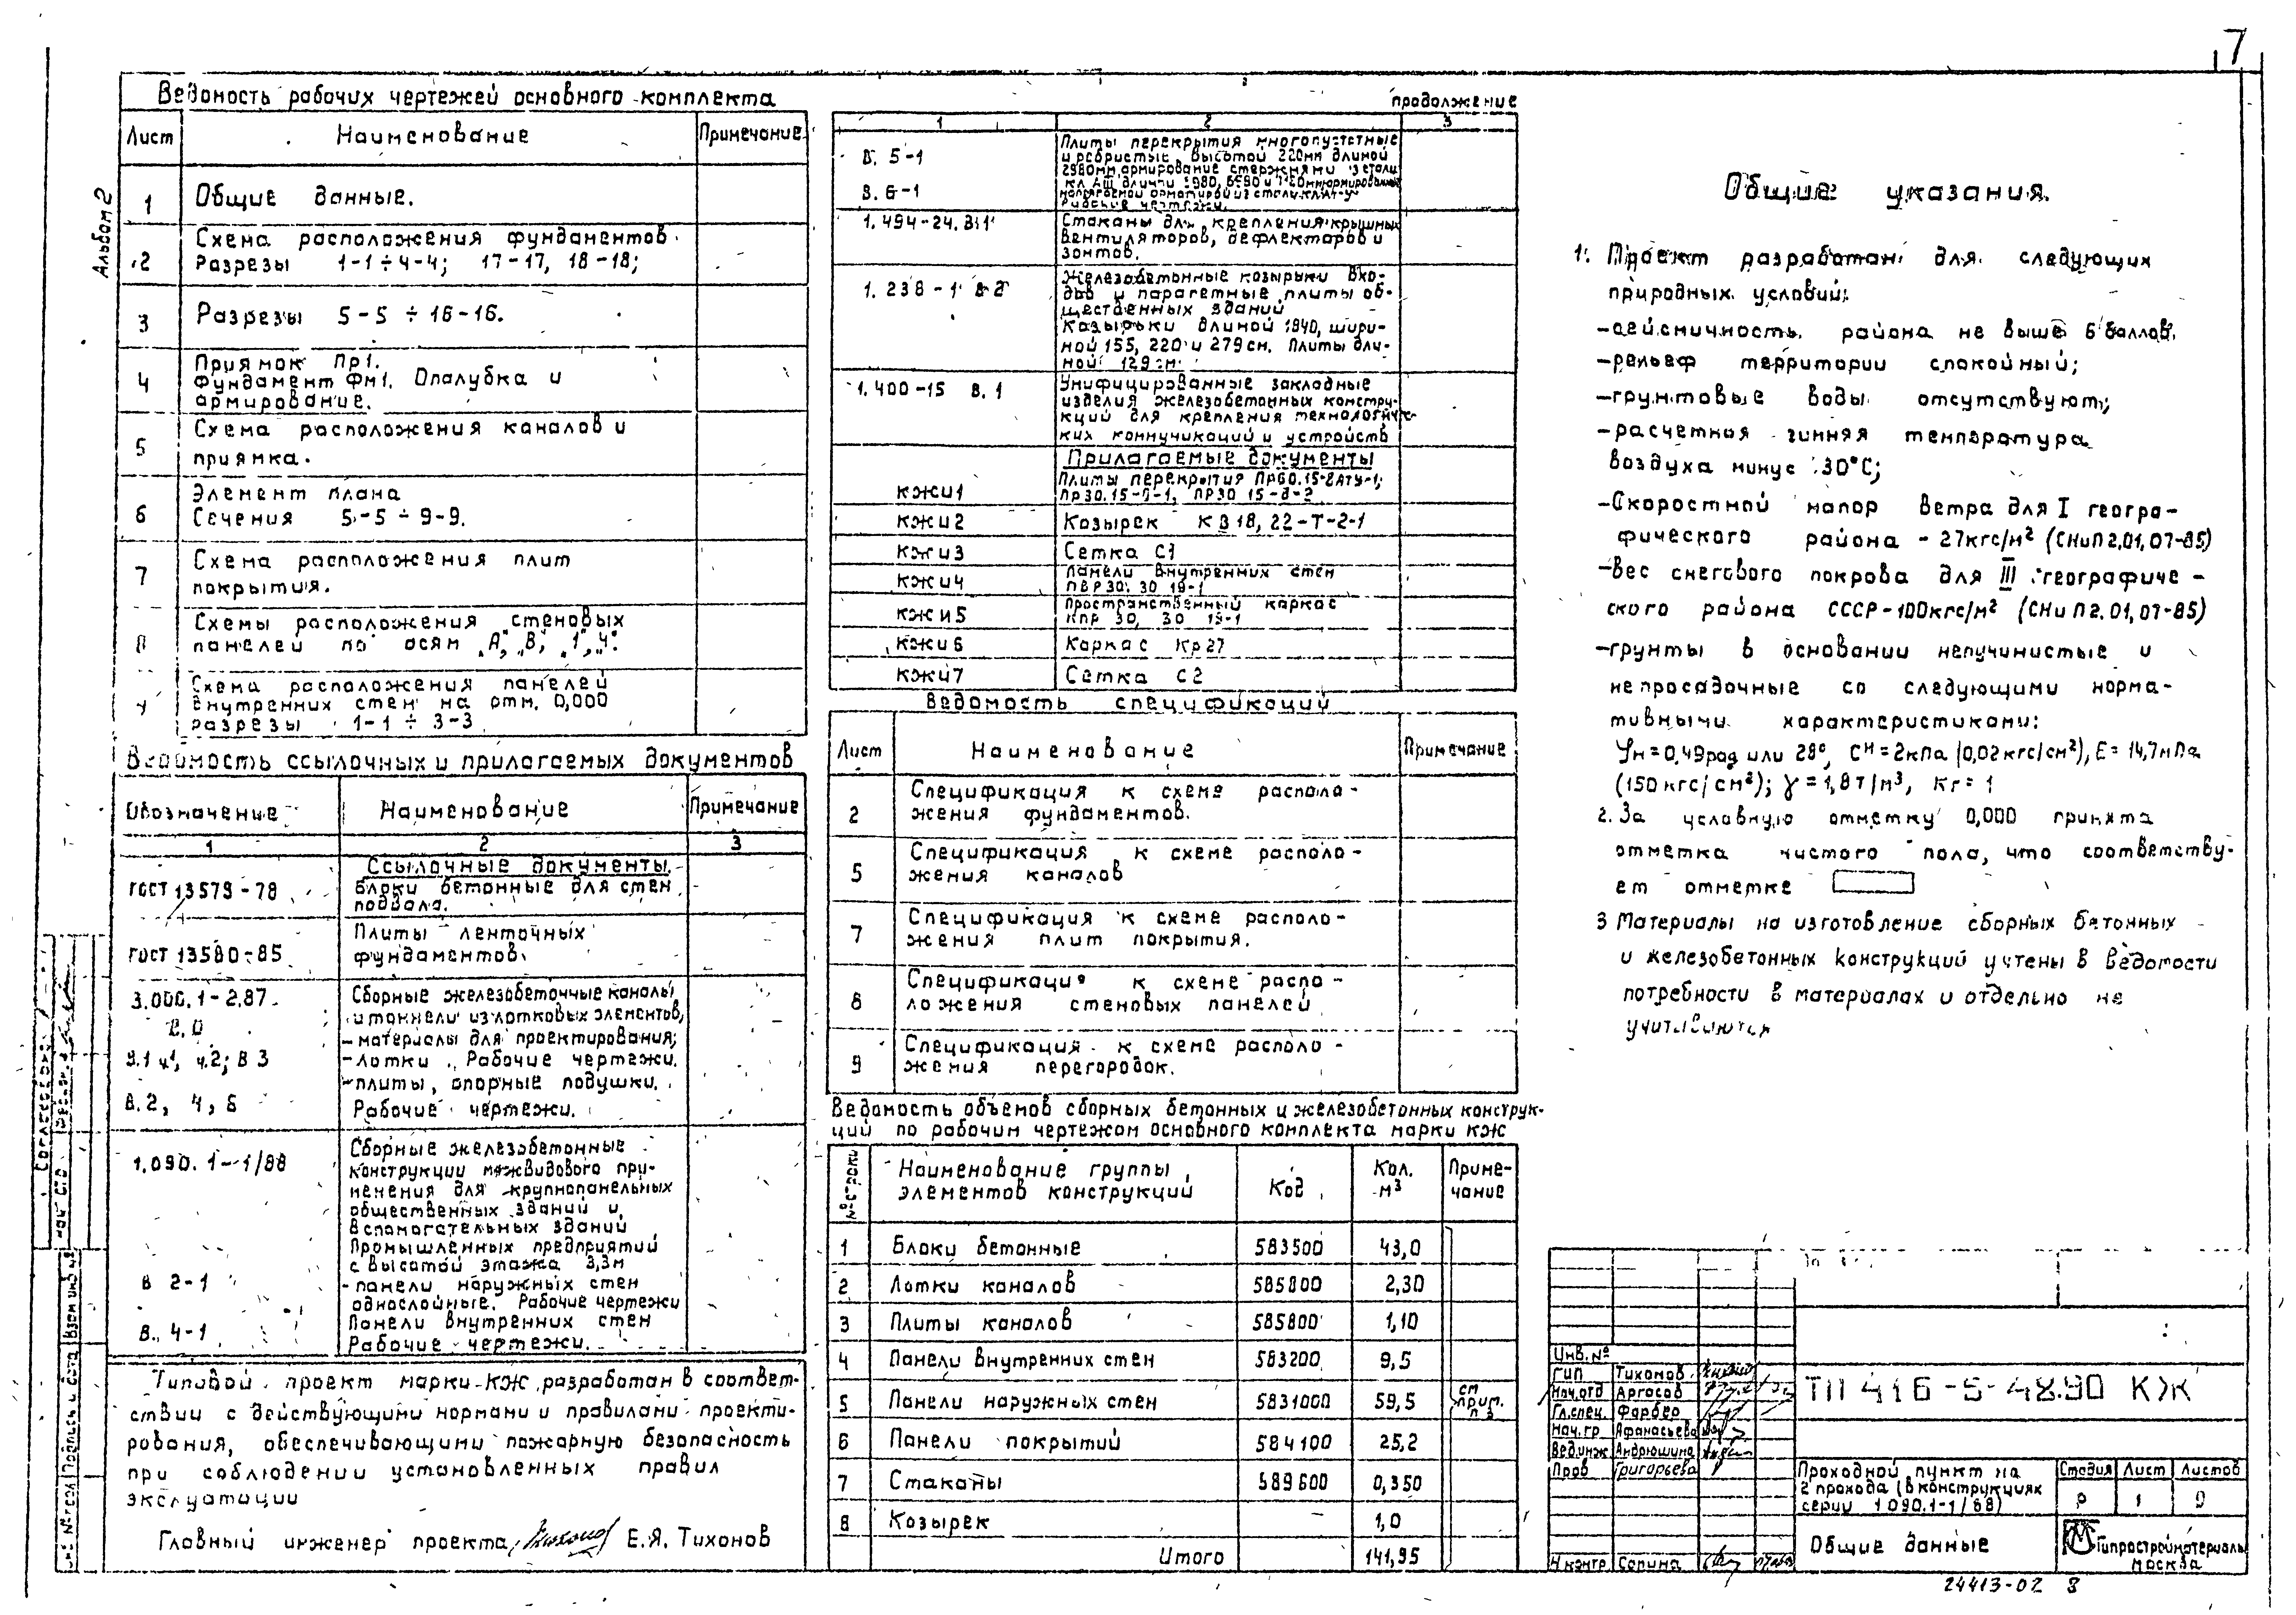 7
Альбом 2
Ведомость рабочих чертежей основного комплекта
Лист Наименование Примечание
1 Общие данные.
2 Схема расположения фундаментов.
Разрезы 1-1÷4-4; 17-17, 18-18;
3 Разрезы 5-5 ÷ 16-16.
4 Приямок Пр1.
Фундамент Фм1. Опалубка и
армирование.
5 Схема расположения каналов и
приямка.
6 Элемент плана
Сечения 5-5 ÷ 9-9.
7 Схема расположения плит
покрытия.
8 Схемы расположения стеновых
панелей по осям „А", „В", „1", „4".
Схема расположения панелей
внутренних стен на отм. 0,000
разрезы 1-1 ÷ 3-3
Ведомость ссылочных и прилагаемых документов
Обозначение Наименование Примечание
1 2 3
Ссылочные документы.
ГОСТ 13579-78 Блоки бетонные для стен
подвала.
ГОСТ 13580-85 Плиты ленточных
фундаментов.
3.000.1-2.87 Сборные железобетонные каналы
В.0 и тоннели из лотковых элементов,
-материалы для проектирования;
В.1 ч1, ч.2; В 3 -лотки. Рабочие чертежи.
-плиты, опорные подушки.
В.2, 4, 5 Рабочие чертежи.
1.090.1-1/88 Сборные железобетонные
конструкции межвидового при-
менения для крупнопанельных
общественных зданий и
вспомогательных зданий
промышленных предприятий
с высотой этажа 3,3м
В 2-1 -панели наружных стен
однослойные. Рабочие чертежи
В. 4-1 Панели внутренних стен
Рабочие чертежи.
Типовой проект марки КЖ разработан в соответ-
ствии с действующими нормами и правилами проекти-
рования, обеспечивающими пожарную безопасность
при соблюдении установленных правил
эксплуатации
Главный инженер проекта Е.Я. Тихонов
продолжение
1 2 3
В. 5-1 Плиты перекрытия многопустотные
и ребристые высотой 220мм длиной
2980мм, армирование стержнями из стали
В. 6-1
Рабочие чертежи.
1.494-24. В.1 Стаканы для крепления крышных
вентиляторов, дефлекторов и
зонтов.
1.238-1 в 2 Железобетонные козырьки вхо-
дов и парапетные плиты об-
щественных зданий
Козырьки длиной 1840, шири-
ной 155, 220 и 279 см. Плиты дли-
ной 129 см.
1.400-15 В.1 Унифицированные закладные
изделия железобетонных констру-
кций для крепления технологичес-
ких коммуникаций и устройств
Прилагаемые документы
КЖИ1 Плиты перекрытия
КЖИ2 Козырек КВ 18,22-Т-2-1
КЖИ3 Сетка С1
КЖИ4 Панели внутренних стен
ПВР 30.30 19-1
КЖИ5 Пространственный каркас
КПР 30, 30 19-1
КЖИ6 Каркас Кр27
КЖИ7 Сетка С2
Ведомость спецификаций
Лист Наименование Примечание
2 Спецификация к схеме располо-
жения фундаментов.
5 Спецификация к схеме располо-
жения каналов
7 Спецификация к схеме располо-
жения плит покрытия.
8 Спецификация к схеме распо-
ложения стеновых панелей
9 Спецификация к схеме располо-
жения перегородок.
Ведомость объемов сборных бетонных и железобетонных конструк-
ций по рабочим чертежам основного комплекта марки КЖ
№ строки Наименование группы элементов конструкций Код Кол. м³ Приме-чание
1 Блоки бетонные 583500 43,0
2 Лотки каналов 585800 2,30
3 Плиты каналов 585800 1,10
4 Панели внутренних стен 583200 9,5
5 Панели наружных стен 5831000 59,5 см прим. п 3
6 Панели покрытий 584100 25,2
7 Стаканы 589600 0,350
8 Козырек 1,0
Итого 141,95
Общие указания.
1. Проект разработан для следующих
природных условий:
-сейсмичность района не выше 6 баллов.
-рельеф территории спокойный;
-грунтовые воды отсутствуют;
-расчетная зимняя температура
воздуха минус 30°С;
-Скоростной напор ветра для I геогра-
фического района - 27кгс/м² (СНиП 2.01.07-85)
-Вес снегового покрова для III географиче-
ского района СССР-100кгс/м² (СНиП 2.01.07-85)
-грунты в основании непучинистые и
непросадочные со следующими норма-
тивными характеристиками:
φн=0,49рад или 28°, Сн=2кПа (0,02кгс/см²), Е=14,7мПа
(150кгс/см²); γ=1,8т/м³, Кг=1
2. За условную отметку 0,000 принята
отметка чистого пола, что соответству-
ет отметке
3 Материалы на изготовление сборных бетонных
и железобетонных конструкций учтены в ведомости
потребности в материалах и отдельно не
учитываются
Инв.№
ГИП Тихонов
Нач.отд Аргасов
Гл.спец. Фарбер
Нач.гр Афанасьева
Вед.инж Андрюшина
Пров Григорьева
Н контр Сапина
ТП 416-5-48.90 КЖ
Проходной пункт на
2 прохода (в конструкциях
серии 1.090.1-1/88)
Стадия Лист Листов
Р 1 9
Общие данные
Гипростройматериалы
Москва
24413-02 8
Согласовано
Взам инв №
Подпись и дата
Инв № подл